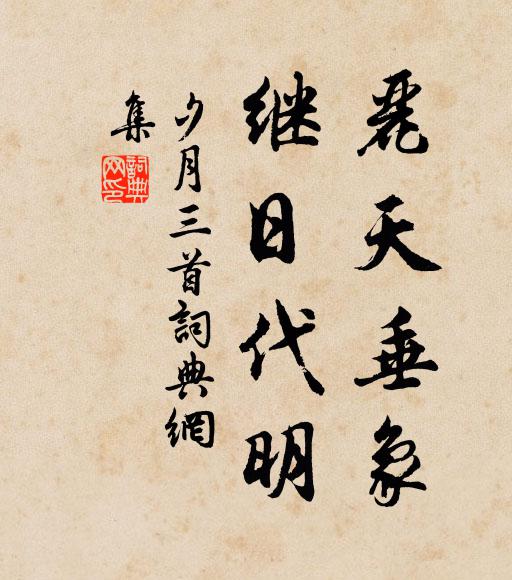 麗天垂象
继日代明
夕月三首詞典網
集
詞典网印